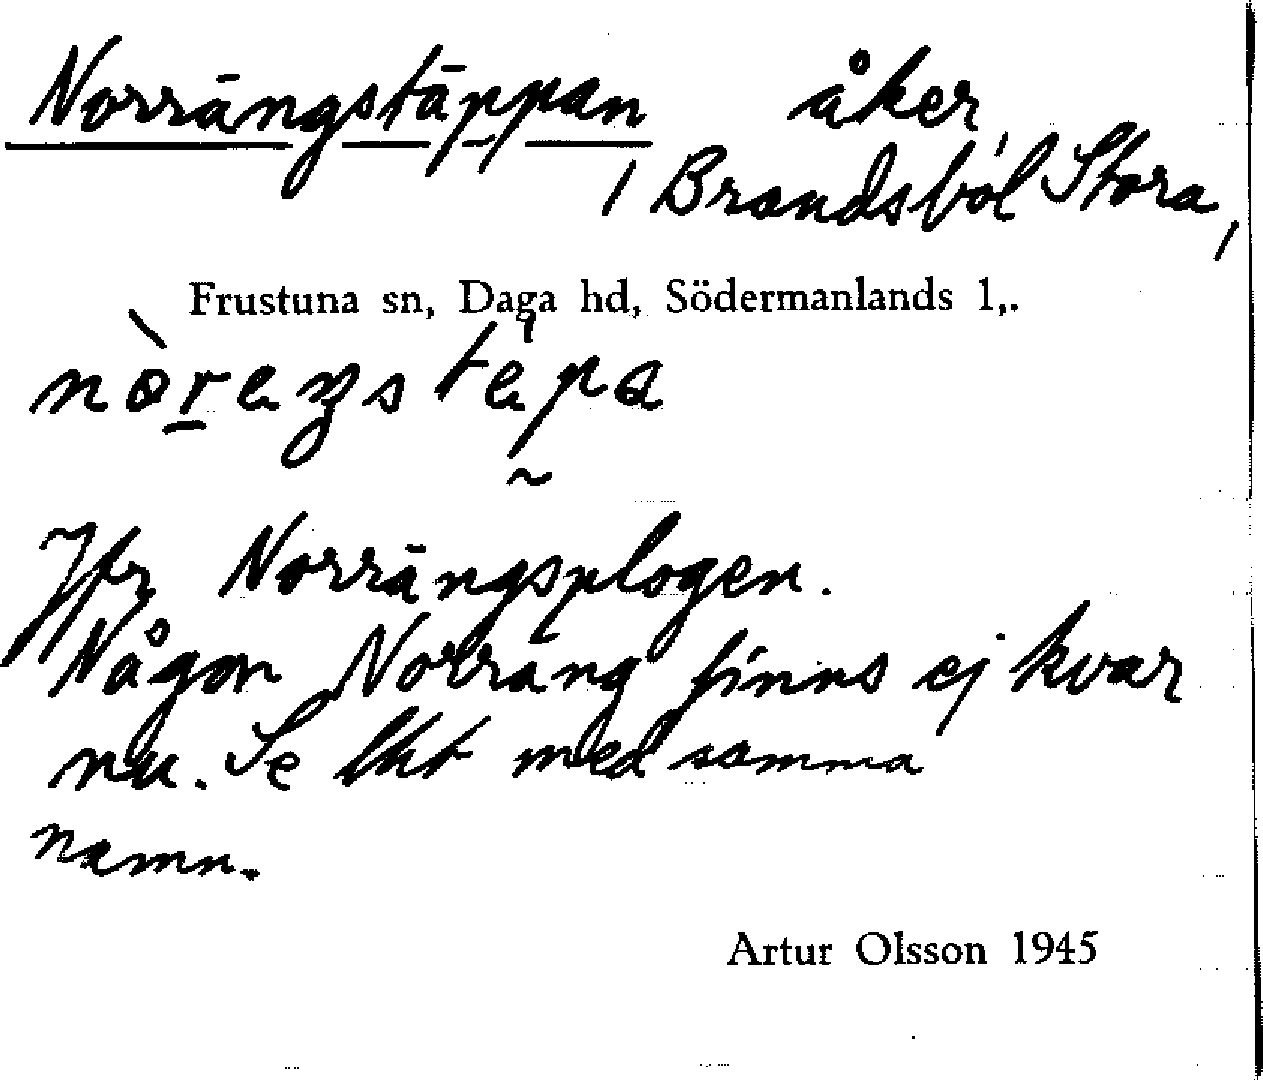 Norrängstäppan åker,
, Brandsbol Stora,
Frustuna sn, Daga hd, Södermanlands l,.
Jfr Norrängsplogen.
Någon Norräng finns ej kvar
nu. Se lkt med samma
namn.
Artur Olsson 1945